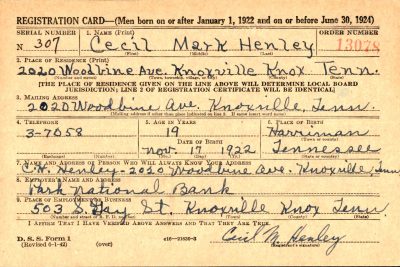 REGISTRATION CARD—(Men born on or after January 1, 1922 and on or before June 30, 1924)
SERIAL NUMBER 1. NAME (Print) ORDER NUMBER
N 307 Cecil Mark Henley 13078
(First) (Middle) (Last)
2. PLACE OF RESIDENCE (Print)
2020 Woodbine Ave. Knoxville Knox Tenn.
(Number and street) (Town, township, village, or city) (County) (State)
[THE PLACE OF RESIDENCE GIVEN ON THE LINE ABOVE WILL DETERMINE LOCAL BOARD
JURISDICTION; LINE 2 OF REGISTRATION CERTIFICATE WILL BE IDENTICAL]
3. MAILING ADDRESS
2020 Woodbine Ave. Knoxville, Tenn.
(Mailing address if other than place indicated on line 2. If same insert word same)
4. TELEPHONE 5. AGE IN YEARS 6. PLACE OF BIRTH
3-7058 19 Harriman
DATE OF BIRTH (Town or county)
Nov. 17 1922 Tennessee
(Exchange) (Number) (Mo.) (Day) (Yr.) (State or country)
7. NAME AND ADDRESS OF PERSON WHO WILL ALWAYS KNOW YOUR ADDRESS
C.H. Henley-2020 Woodbine Ave. Knoxville, Tenn
8. EMPLOYER'S NAME AND ADDRESS
Park National Bank
9. PLACE OF EMPLOYMENT OR BUSINESS
503 S. Gay St. Knoxville Knox Tenn
(Number and street or R. F. D. number) (Town) (County) (State)
I AFFIRM THAT I HAVE VERIFIED ABOVE ANSWERS AND THAT THEY ARE TRUE.
D. S. S. Form 1
(Revised 6-1-42) (over) c16—21630-2 Cecil M. Henley
(Registrant's signature)